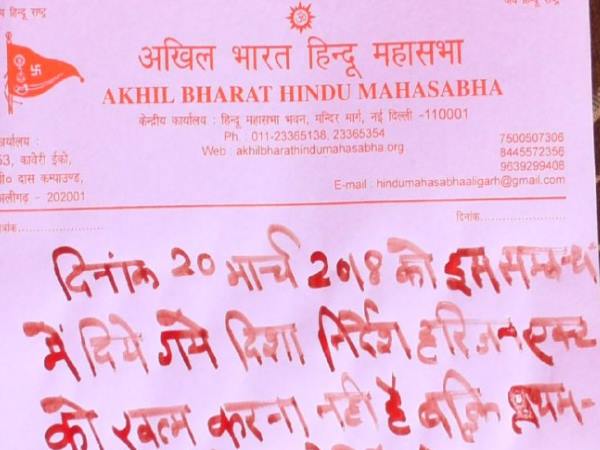 हिन्दू राष्ट्र
हिन्दू राष्ट्र
अखिल भारत हिन्दू महासभा
AKHIL BHARAT HINDU MAHASABHA
केन्द्रीय कार्यालय : हिन्दू महासभा भवन, मन्दिर मार्ग, नई दिल्ली -110001
Ph. : 011-23365138, 23365354
Web : akhilbharathindumahasabha.org
कार्यालय :
63, कावेरी ईको,
दास कम्पाउण्ड,
अलीगढ़ - 202001
7500507306
8445572356
9639299406
E-mail : hindumahasabhaaligarh@gmail.com
दिनांक
दिनांक 20 मार्च 2018 को इस सम्बन्ध
में दिये गये दिशा निर्देश हरिजन एक्ट
को खत्म करना नहीं है बल्कि प्रथम-